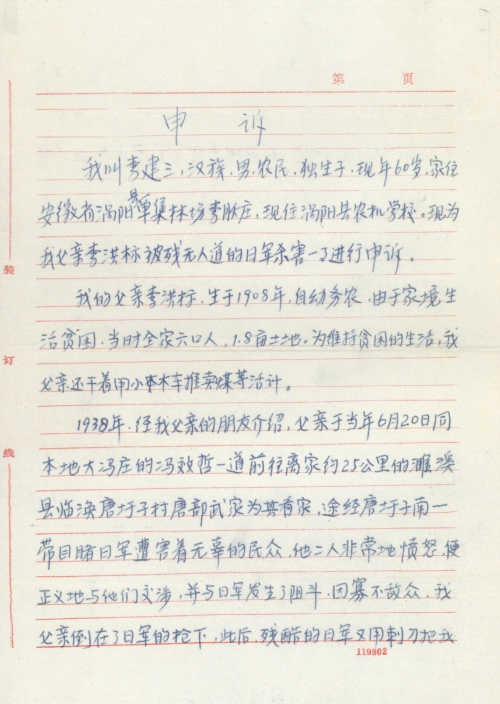 第 页
申 诉
我叫李建三,汉族,男,农民,独生子,现年60岁,家住
安徽省涡阳县单集林场李脉庄,现住涡阳县农机学校。现为
我父亲李洪标被残无人道的日军杀害一了进行申诉。
我的父亲李洪标,生于1908年,自幼务农,由于家境生
活贫困,当时全家六口人,1.8亩土地。为维持贫困的生活,我
父亲还干着用小木车推卖煤等活计。
1938年,经我父亲的朋友介绍,父亲于当年6月20日同
本地大冯庄的冯效哲一道前往离家约25公里的濉溪
县临涣唐圩子村唐部武家为其看家,途经唐圩子南一
带目睹日军遭害着无辜的民众,他二人非常地愤怒,便
正义地与他们交涉,并与日军发生了阻斗,因寡不敌众,我
父亲倒在了日军的枪下,此后,残酷的日军又用刺刀把我
装
订
线
119802